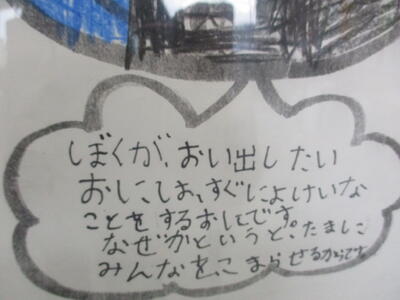 ぼくが、おい出したい
おには、すぐによけいな
ことをするおにです。
なぜかというと、たまに
みんなを、こまらせるからです。